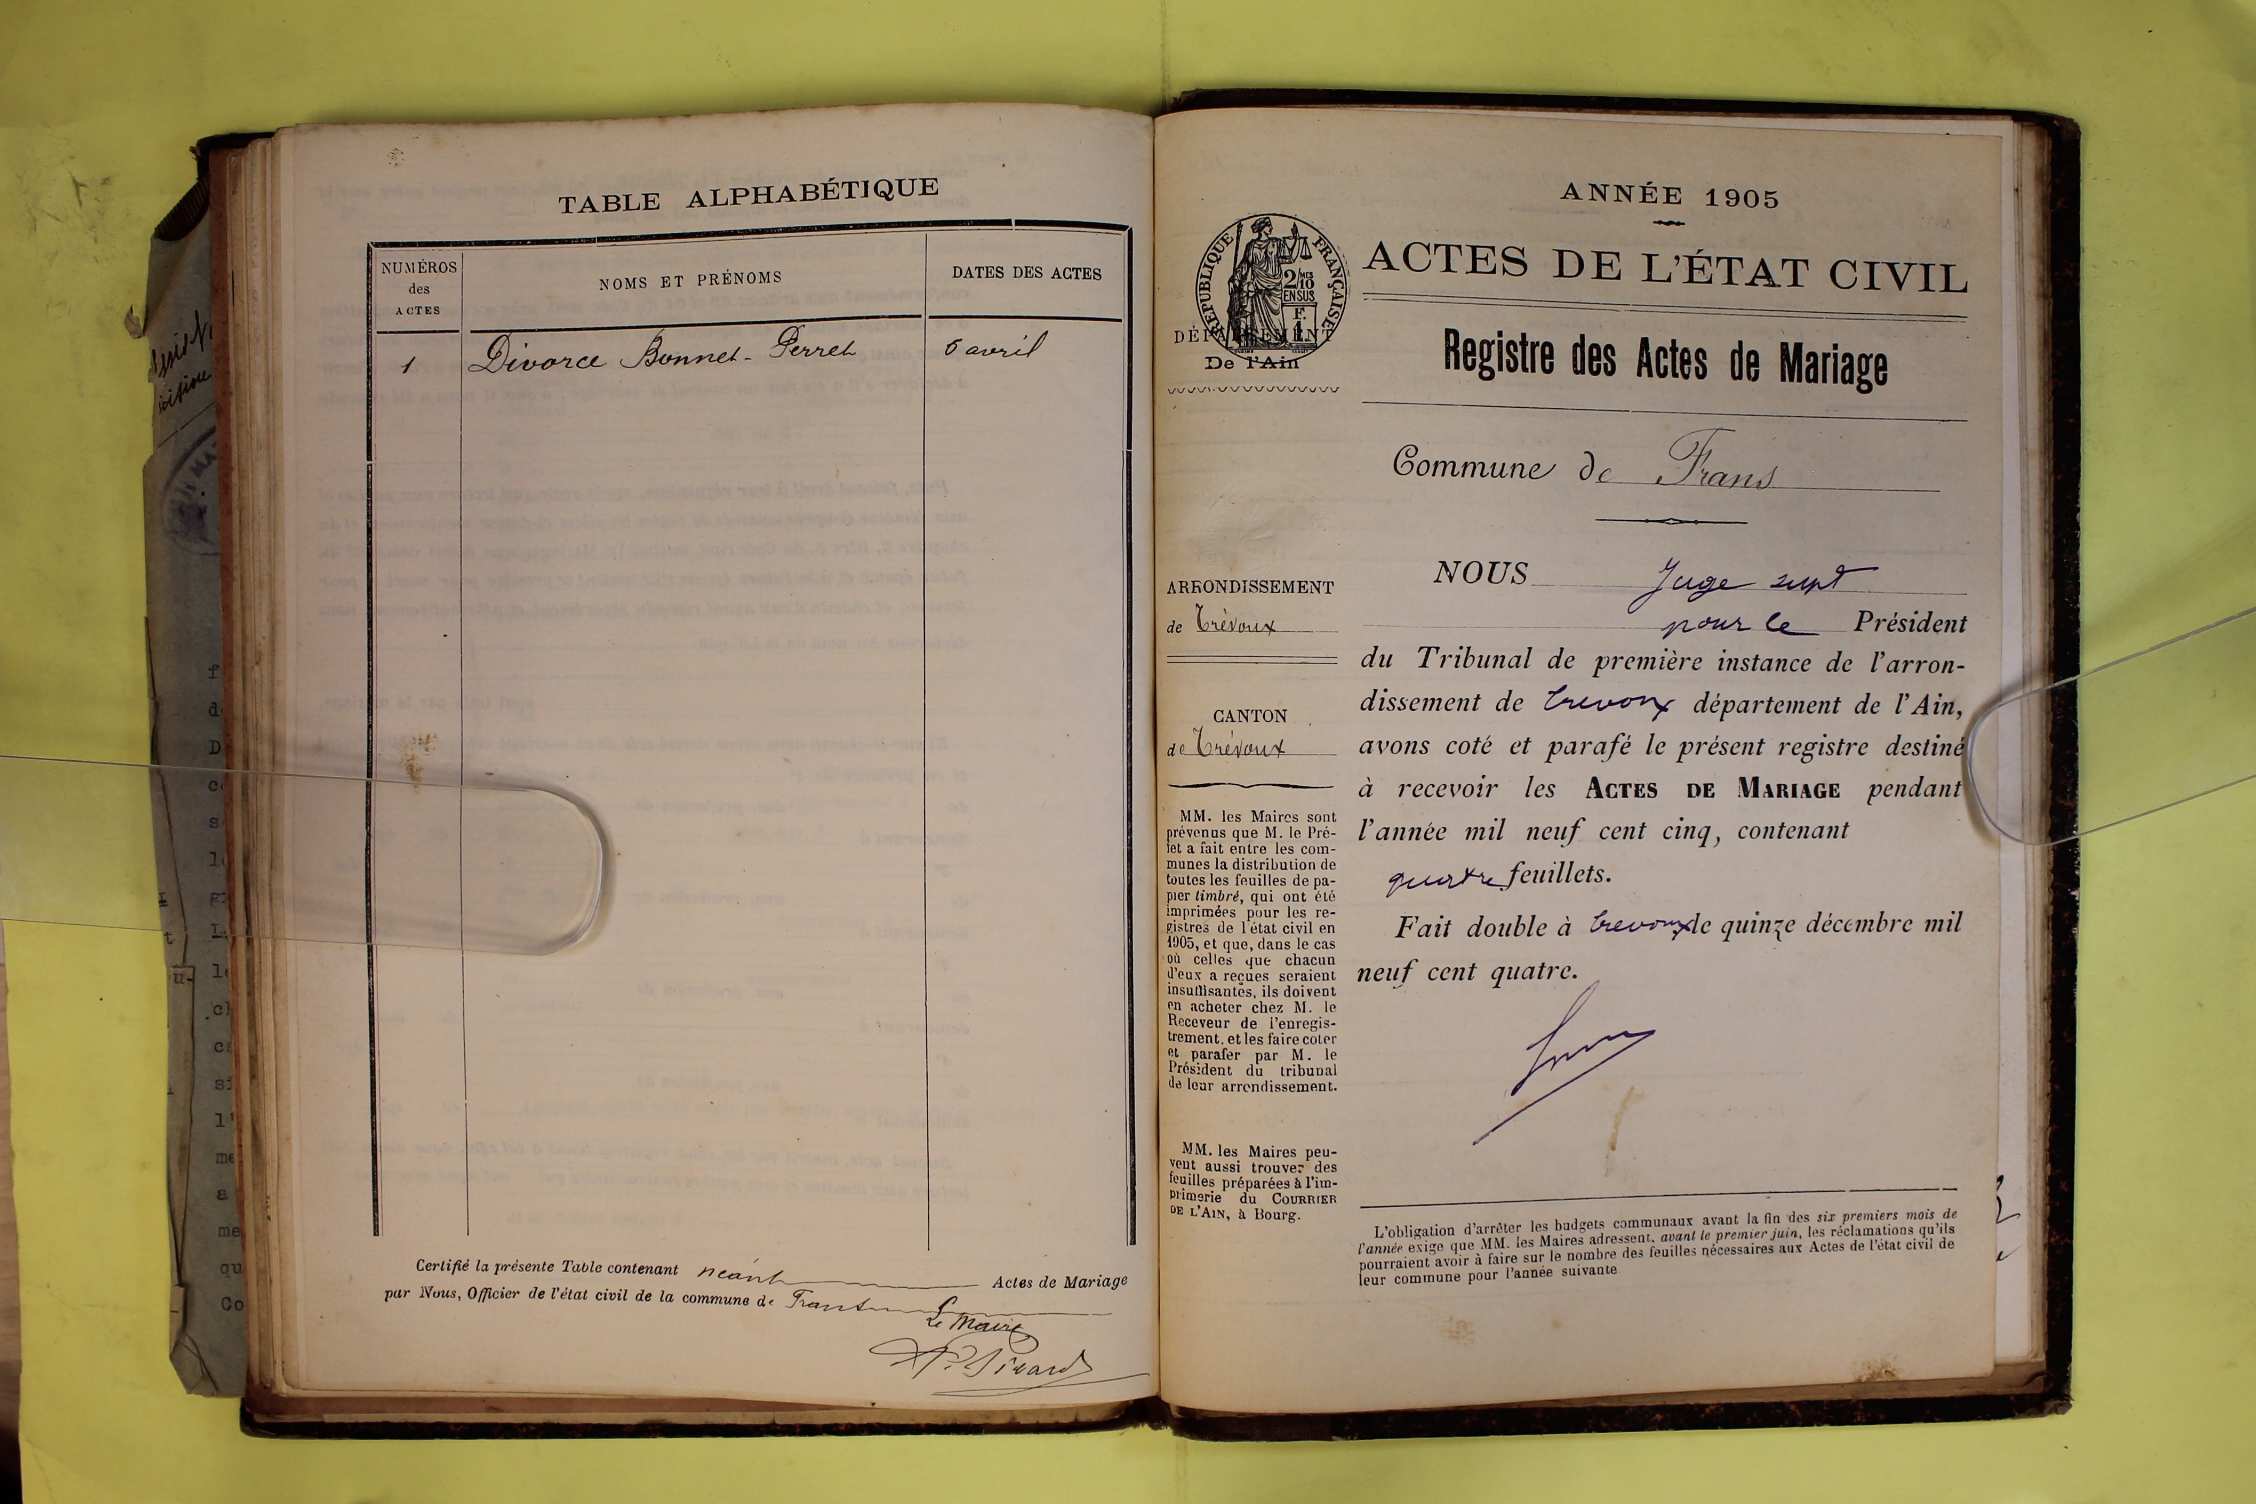 TABLE ALPHABÉTIQUE
NUMÉROS
des
ACTES
NOMS ET PRÉNOMS
DATES DES ACTES
1
Divorce Bonnet-Perret
6 avril
Certifié la présente Table contenant néant Actes de Mariage
par Nous, Officier de l'état civil de la commune de Frans
Le Maire
ANNÉE 1905
ACTES DE L'ÉTAT CIVIL
Registre des Actes de Mariage
RÉPUBLIQUE FRANÇAISE
2/10
EN SUS
F.
1
DÉPARTEMENT
De l'Ain
ARRONDISSEMENT
de Trévoux
CANTON
de Trévoux
MM. les Maires sont
prévenus que M. le Pré-
fet a fait entre les com-
munes la distribution de
toutes les feuilles de pa-
pier timbré, qui ont été
imprimées pour les re-
gistres de l'état civil en
1905, et que, dans le cas
où celles que chacun
d'eux a reçues seraient
insuffisantes, ils doivent
en acheter chez M. le
Receveur de l'enregis-
trement, et les faire coter
et parafer par M. le
Président du tribunal
de leur arrondissement.
MM. les Maires peu-
vent aussi trouver des
feuilles préparées à l'im-
primerie du COURRIER
DE L'AIN, à Bourg.
Commune de Frans
NOUS Juge supt
pour le Président
du Tribunal de première instance de l'arron-
dissement de Trevoux département de l'Ain,
avons coté et parafé le présent registre destiné
à recevoir les ACTES DE MARIAGE pendant
l'année mil neuf cent cinq, contenant
quatre feuillets.
Fait double à Trevoux le quinze décembre mil
neuf cent quatre.
L'obligation d'arrêter les budgets communaux avant la fin des six premiers mois de
l'année exige que MM. les Maires adressent, avant le premier juin, les réclamations qu'ils
pourraient avoir à faire sur le nombre des feuilles nécessaires aux Actes de l'état civil de
leur commune pour l'année suivante